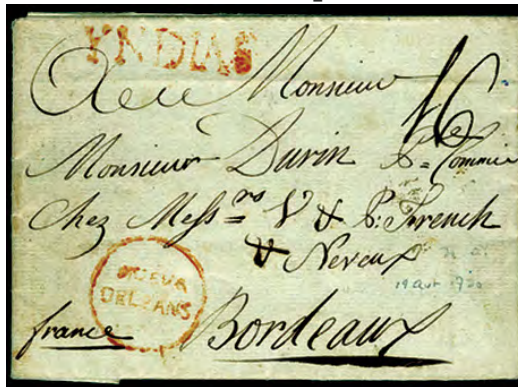 YNDIAS
A Monsieur
16
Monsieur Durin
Chez Mess.rs V & P: French
& Neveux
NUEVA
ORLEANS
france Bordeaux